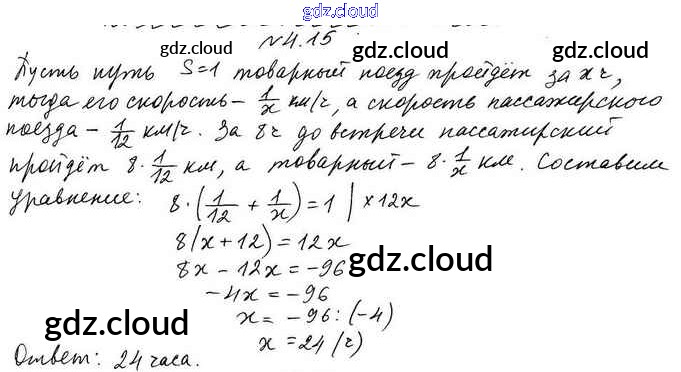 gdz.cloud
№4.15
gdz.cloud gdz.cloud
Пусть путь S=1 товарный поезд пройдёт за x ч,
тогда его скорость – 1/x км/ч, а скорость пассажирского
поезда – 1/12 км/ч. За 8 ч до встречи пассажирский
пройдёт 8·1/12 км, а товарный – 8·1/x км. Составим
уравнение: 8·(1/12 + 1/x) = 1 | ×12x
8(x+12) = 12x
8x – 12x = –96
gdz.cloud
–4x = –96
gdz.cloud
x = –96 : (–4)
x = 24 (ч)
gdz.cloud
Ответ: 24 часа.